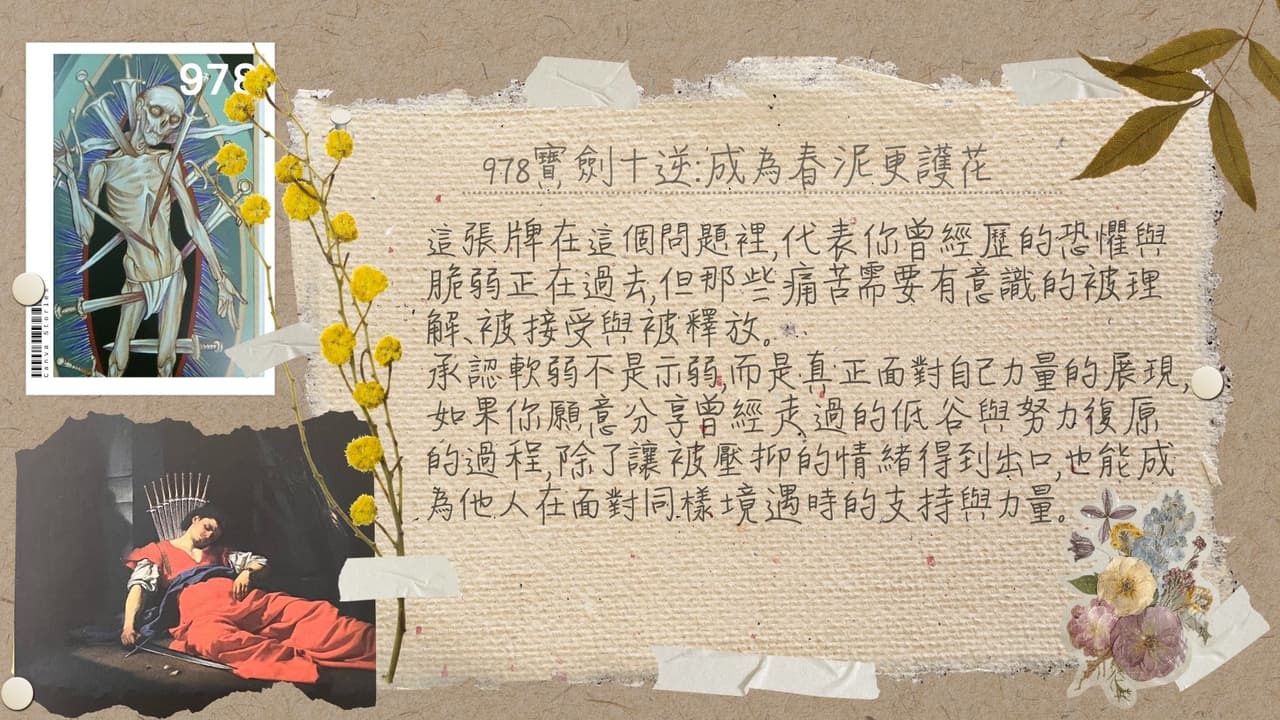 978
Canva Stories
978寶劍十逆:成為春泥更護花
這張牌在這個問題裡,代表你曾經歷的恐懼與
脆弱正在過去,但那些痛苦需要有意識的被理
解、被接受與被釋放。
承認軟弱不是示弱,而是真正面對自己力量的展現,
如果你願意分享曾經走過的低谷與努力復原
的過程,除了讓被壓抑的情緒得到出口,也能成
為他人在面對同樣境遇時的支持與力量。